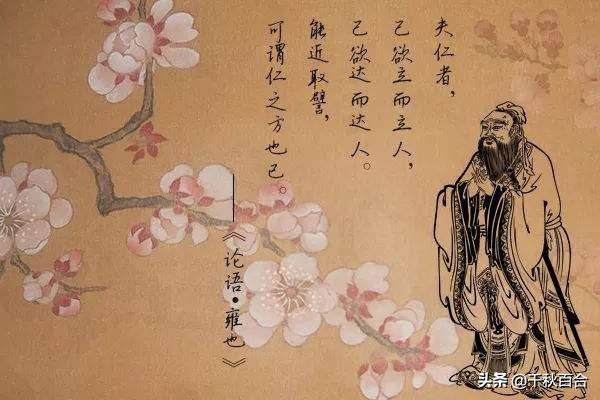 夫仁者，
己欲立而立人，
己欲达而达人。
能近取譬，
可谓仁之方也已。
《论语·雍也》
头条 @千秋百合